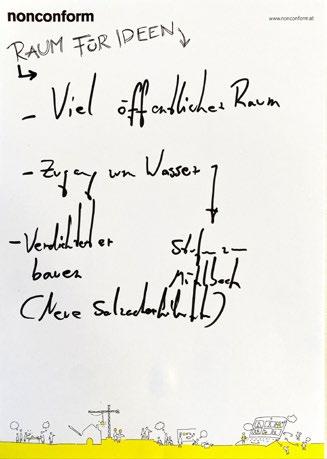 nonconform
www.nonconform.at
RAUM FÜR IDEEN
- Viel öffentlicher Raum
- Zugang zum Wasser
- Verdichteter
bauen
Mühlbach
(Neue